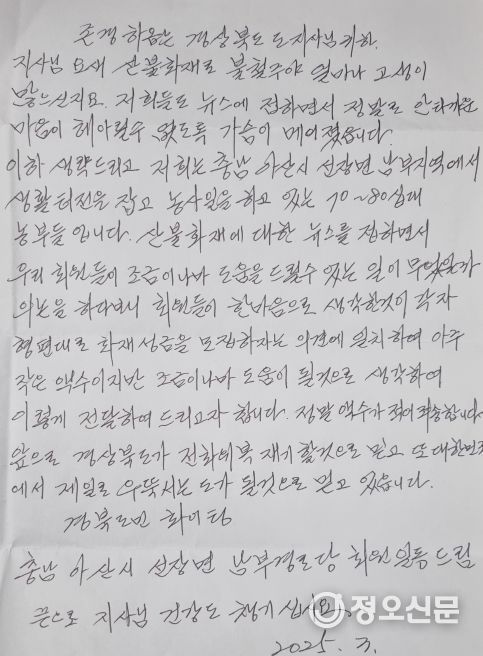 존경하옵는 경상북도 도지사님 귀하.
지사님 요새 산불화재로 불철주야 얼마나 고생이
많으신지요. 저희들도 뉴스에 접하면서 정말로 안타까운
마음이 헤아릴수 없도록 가슴이 메어졌습니다.
이하 생략드리고 저희는 충남 아산시 선장면 남부지역에서
생활터전을 잡고 농사일을 하고 있는 70~80십대
농부들 입니다. 산불화재에 대한 뉴스를 접하면서
우리 회원들이 조금이나마 도움을 드릴수 있는 일이 무엇일까
의논을 하다보니 회원들이 한마음으로 생각한것이 각자
형편대로 화재성금을 모집하자는 의견에 일치하여 아주
작은 액수이지만 조금이나마 도움이 될것으로 생각하여
이렇게 전달하여 드리고자 합니다. 정말 액수가 적어 죄송합니다.
앞으로 경상북도가 전화위복 재기할것으로 믿고 또 대한민국
에서 제일로 우뚝서는 도가 될것으로 믿고 있습니다.
경북도민 화이팅
충남 아산시 선장면 남부경로당 회원일동 드림
끝으로 지사님 건강도 챙기십시요.
2025. 3.
정오신문